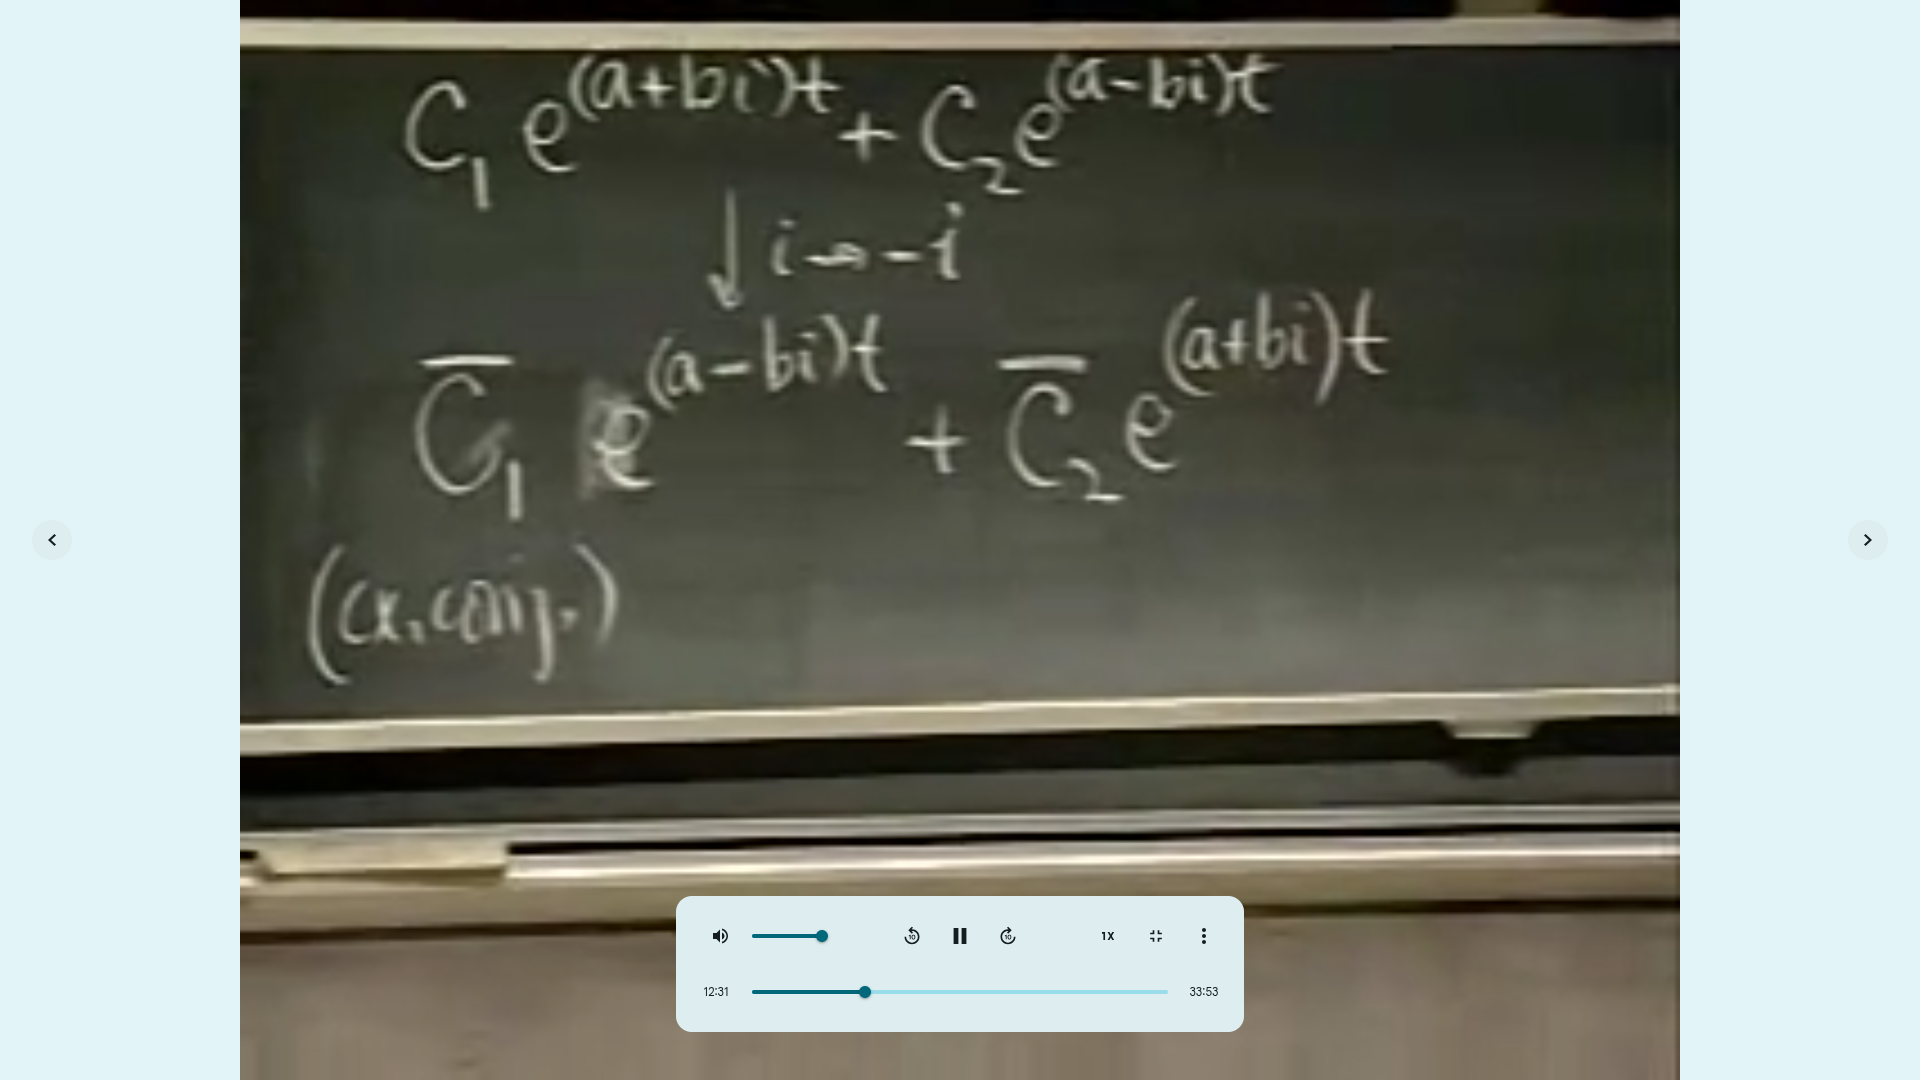 C₁ e^(a+bi)t + C₂ e^(a-bi)t
↓ i → -i
C̅₁ e^(a-bi)t + C̅₂ e^(a+bi)t
(cx. conj.)
10 10 1X
12:31 33:53